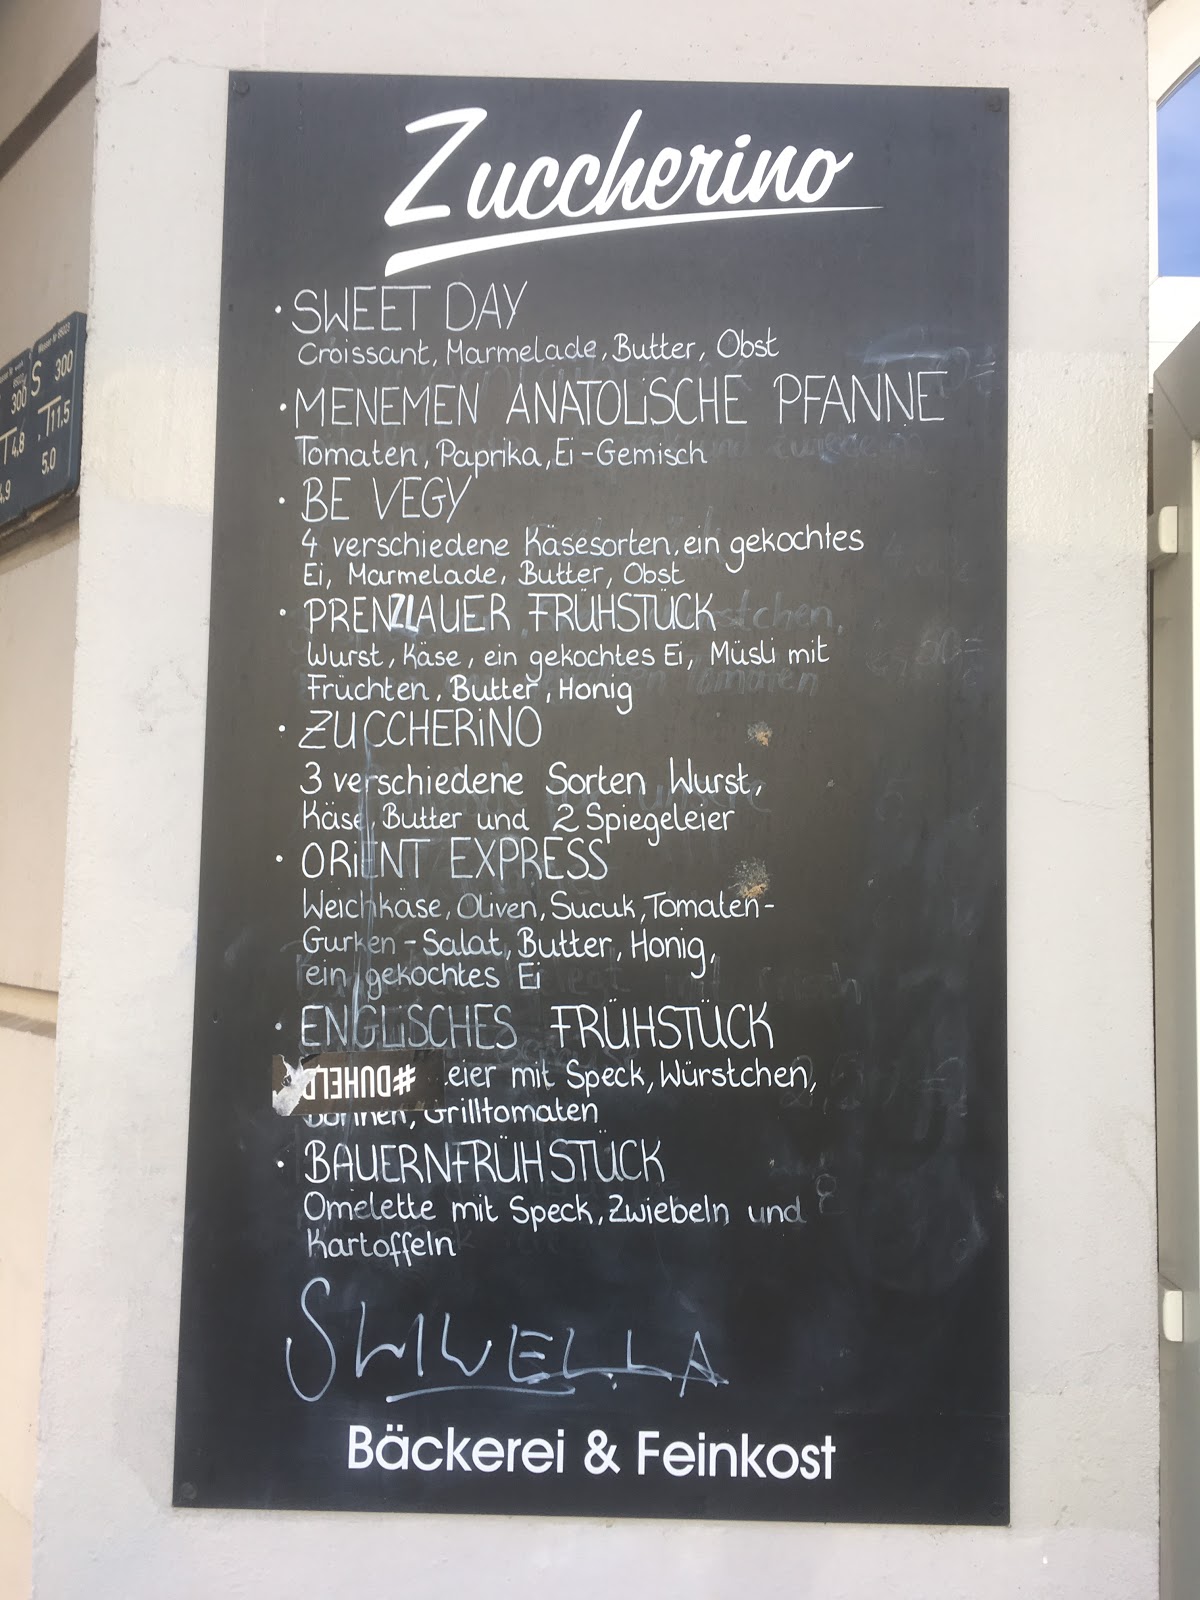 Zuccherino
• SWEET DAY
Croissant, Marmelade, Butter, Obst
• MENEMEN ANATOLISCHE PFANNE
Tomaten, Paprika, Ei-Gemisch
• BE VEGY
4 verschiedene Käsesorten, ein gekochtes
Ei, Marmelade, Butter, Obst
• PRENZLAUER FRÜHSTÜCK
Wurst, Käse, ein gekochtes Ei, Müsli mit
Früchten, Butter, Honig
• ZUCCHERiNO
3 verschiedene Sorten Wurst,
Käse, Butter und 2 Spiegeleier
• ORiENT EXPRESS
Weichkäse, Oliven, Sucuk, Tomaten-
Gurken-Salat, Butter, Honig,
ein gekochtes Ei
• ENGLISCHES FRÜHSTÜCK
#DUHELD
eier mit Speck, Würstchen,
Bohnen, Grilltomaten
• BAUERNFRÜHSTÜCK
Omelette mit Speck, Zwiebeln und
Kartoffeln
Bäckerei & Feinkost
S 300
300
T 11.5
T 4.8
5.0
4.9